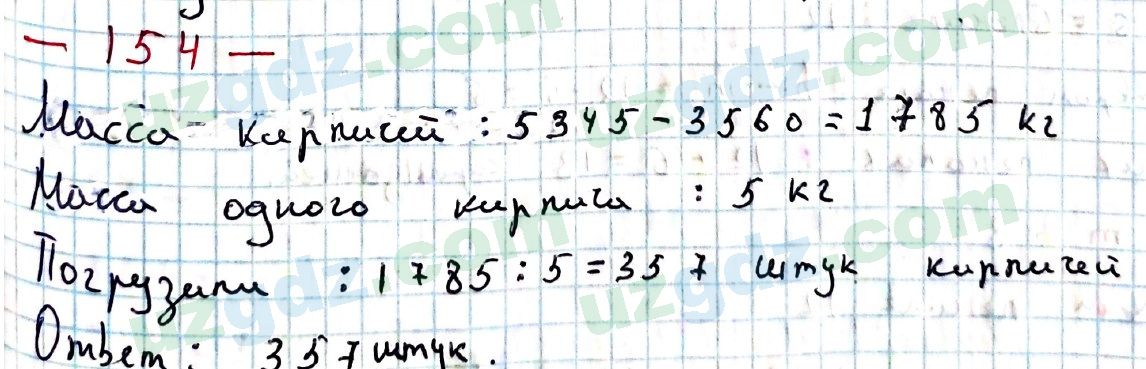 — 154 —
Масса кирпичей : 5345 - 3560 = 1785 кг
Масса одного кирпича : 5 кг
Погрузили : 1785 : 5 = 357 штук кирпичей
Ответ : 357 штук .